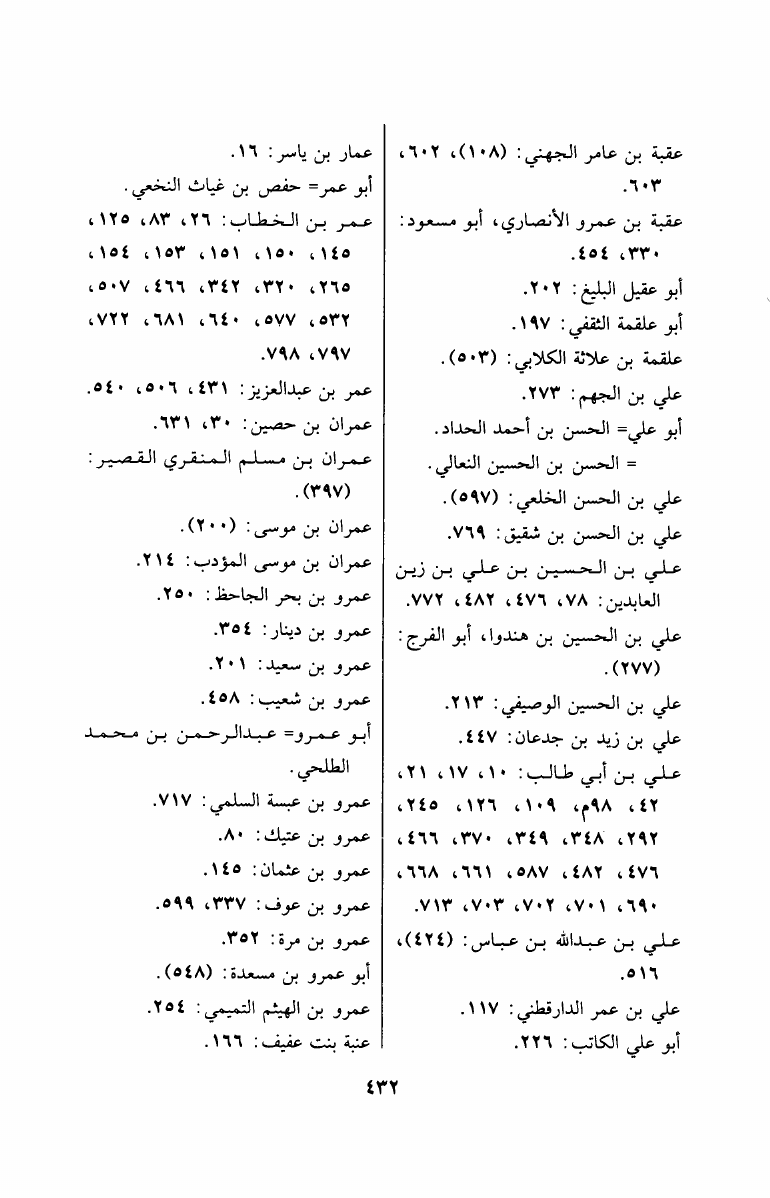 عقبة بن عامر الجهني: (١٠٨)، ٦٠٢،
٦٠٣.
عقبة بن عمرو الأنصاري، أبو مسعود:
٣٣٠، ٤٥٤.
أبو عقيل البليغ: ٢٠٢.
أبو علقمة الثقفي: ١٩٧.
علقمة بن علاثة الكلابي: (٥٠٣).
علي بن الجهم: ٢٧٣.
أبو علي= الحسن بن أحمد الحداد.
= الحسن بن الحسين النعالي.
علي بن الحسن الخلعي: (٥٩٧).
علي بن الحسن بن شقيق: ٧٦٩.
علي بن الحسين بن علي بن زين
العابدين: ٧٨، ٤٧٦، ٤٨٢، ٧٧٢.
علي بن الحسين بن هندوا، أبو الفرج:
(٢٧٧).
علي بن الحسين الوصيفي: ٢١٣.
علي بن زيد بن جدعان: ٤٤٧.
علي بن أبي طالب: ١٠، ١٧، ٢١،
٤٢، ٩٨م، ١٠٩، ١٢٦، ٢٤٥،
٢٩٢، ٣٤٨، ٣٤٩، ٣٧٠، ٤٦٦،
٤٧٦، ٤٨٢، ٥٨٧، ٦٦١، ٦٦٨،
٦٩٠، ٧٠١، ٧٠٢، ٧٠٣، ٧١٣.
علي بن عبدالله بن عباس: (٤٢٤)،
٥١٦.
علي بن عمر الدارقطني: ١١٧.
أبو علي الكاتب: ٢٢٦.
عمار بن ياسر: ١٦.
أبو عمر= حفص بن غياث النخعي.
عمر بن الخطاب: ٢٦، ٨٣، ١٢٥،
١٤٥، ١٥٠، ١٥١، ١٥٣، ١٥٤،
٢٦٥، ٣٢٠، ٣٤٢، ٤٦٦، ٥٠٧،
٥٣٢، ٥٧٧، ٦٤٠، ٦٨١، ٧٢٢،
٧٩٧، ٧٩٨.
عمر بن عبدالعزيز: ٤٣١، ٥٠٦، ٥٤٠.
عمران بن حصين: ٣٠، ٦٣١.
عمران بن مسلم المنقري القصير:
(٣٩٧).
عمران بن موسى: (٢٠٠).
عمران بن موسى المؤدب: ٢١٤.
عمرو بن بحر الجاحظ: ٢٥٠.
عمرو بن دينار: ٣٥٤.
عمرو بن سعيد: ٢٠١.
عمرو بن شعيب: ٤٥٨.
أبو عمرو= عبدالرحمن بن محمد
الطلحي.
عمرو بن عبسة السلمي: ٧١٧.
عمرو بن عتيك: ٨٠.
عمرو بن عثمان: ١٤٥.
عمرو بن عوف: ٣٣٧، ٥٩٩.
عمرو بن مرة: ٣٥٢.
أبو عمرو بن مسعدة: (٥٤٨).
عمرو بن الهيثم التميمي: ٢٥٤.
عنبة بنت عفيف: ١٦٦.
٤٣٢